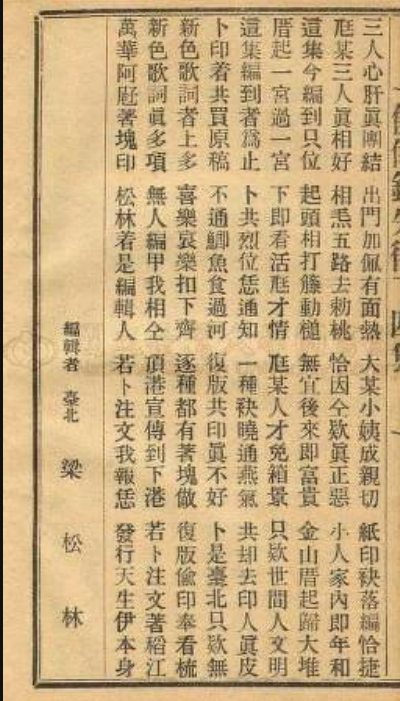 三人心肝眞團結 出門加佩有面熱 大某小姨成親切 紙印袂落編恰捷
尪某三人眞相好 相炁五路去勅桃 恰因仝欵眞正惡 小人家內即年和
這集今編到只位 起頭相打籐動槌 無宜後來即富貴 金山厝起歸大堆
厝起一宮過一宮 下即看活尪才情 尪某人才兔箱景 只欵世間人文明
這集編到者爲止 卜共烈位恁通知 一種袂曉通燕氣 共却去印人眞皮
卜印着共買原稿 不通鯽魚食過河 復版共印眞不好 卜是臺北只欵無
新色歌詞者上多 喜樂哀樂扣下齊 逐種都有著塊做 復版偸印奉看梳
新色歌詞眞多項 無人編甲我相仝 頂港宣傳到下港 若卜注文著稻江
萬華阿著塊印 松林着是編輯人 若卜注文我報恁 發行天生伊本身
編輯者 臺北 梁松林